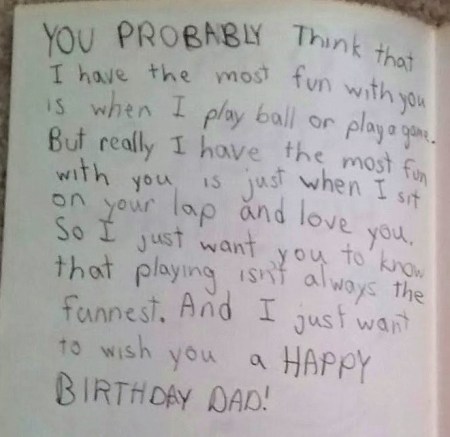 YOU PROBABLY Think that
I have the most fun with you
is when I play ball or play a game.
But really I have the most fun
with you is just when I sit
on your lap and love you.
So I just want you to know
that playing isn't always the
funnest. And I just want
to wish you a HAPPY
BIRTHDAY DAD!